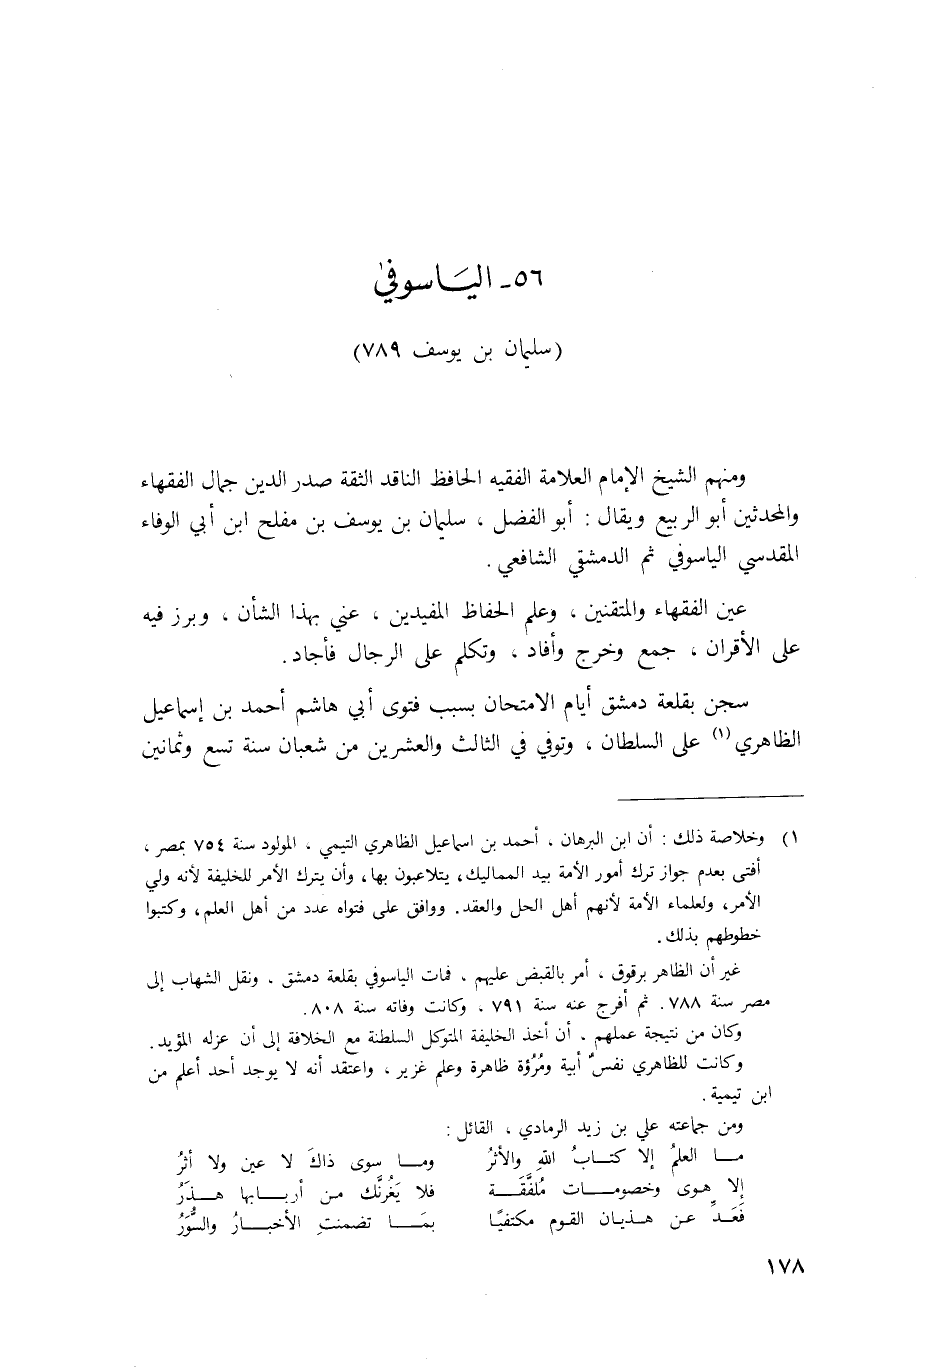 ٥٦ـ اليَاسوفيٰ
(سليمان بن يوسف ٧٨٩)
ومنهم الشيخ الإمام العلامة الفقيه الحافظ الناقد الثقة صدر الدين جمال الفقهاء
والمحدثين أبو الربيع ويقال : أبو الفضل ، سليمان بن يوسف بن مفلح ابن أبي الوفاء
المقدسي الياسوفي ثم الدمشقي الشافعي .
عين الفقهاء والمتقنين ، وعلم الحفاظ المفيدين ، عني بهذا الشأن ، وبرز فيه
على الأقران ، جمع وخرج وأفاد ، وتكلم على الرجال فأجاد .
سجن بقلعة دمشق أيام الامتحان بسبب فتوى أبي هاشم أحمد بن إسماعيل
الظاهري (١) على السلطان ، وتوفي في الثالث والعشرين من شعبان سنة تسع وثمانين
١) وخلاصة ذلك : أن ابن البرهان ، أحمد بن اسماعيل الظاهري التيمي ، المولود سنة ٧٥٤ بمصر ،
أفتى بعدم جواز ترك أمور الأمة بيد المماليك، يتلاعبون بها، وأن يترك الأمر للخليفة لأنه ولي
الأمر، ولعلماء الأمة لأنهم أهل الحل والعقد. ووافق على فتواه عدد من أهل العلم، وكتبوا
خطوطهم بذلك .
غير أن الظاهر برقوق ، أمر بالقبض عليهم ، فمات الياسوفي بقلعة دمشق . ونقل الشهاب إلى
مصر سنة ٧٨٨. ثم أفرج عنه سنة ٧٩١ ، وكانت وفاته سنة ٨٠٨.
وكان من نتيجة عملهم . أن أخذ الخليفة المتوكل السلطنة مع الخلافة إلى أن عزله المؤيد.
وكانت للظاهري نفسٌ أبية ومُرُؤة ظاهرة وعلم غزير ، واعتقد أنه لا يوجد أحد أعلم من
ابن تيمية .
ومن جماعته علي بن زيد الرمادي ، القائل :
مـا العلمُ إلا كتـابُ اللهِ والأثرُ ومـا سوى ذاكَ لا عين ولا أثرُ
إلا هوى وخصومـات مُلفَّقَـة فلا يَغُرنَّك من أربـابها هـذَرُ
فَعَـدِّ عن هـذيان القوم مكتفيًا بمَـا تضمنتِ الأخبـارُ والسُّوَرُ
١٧٨